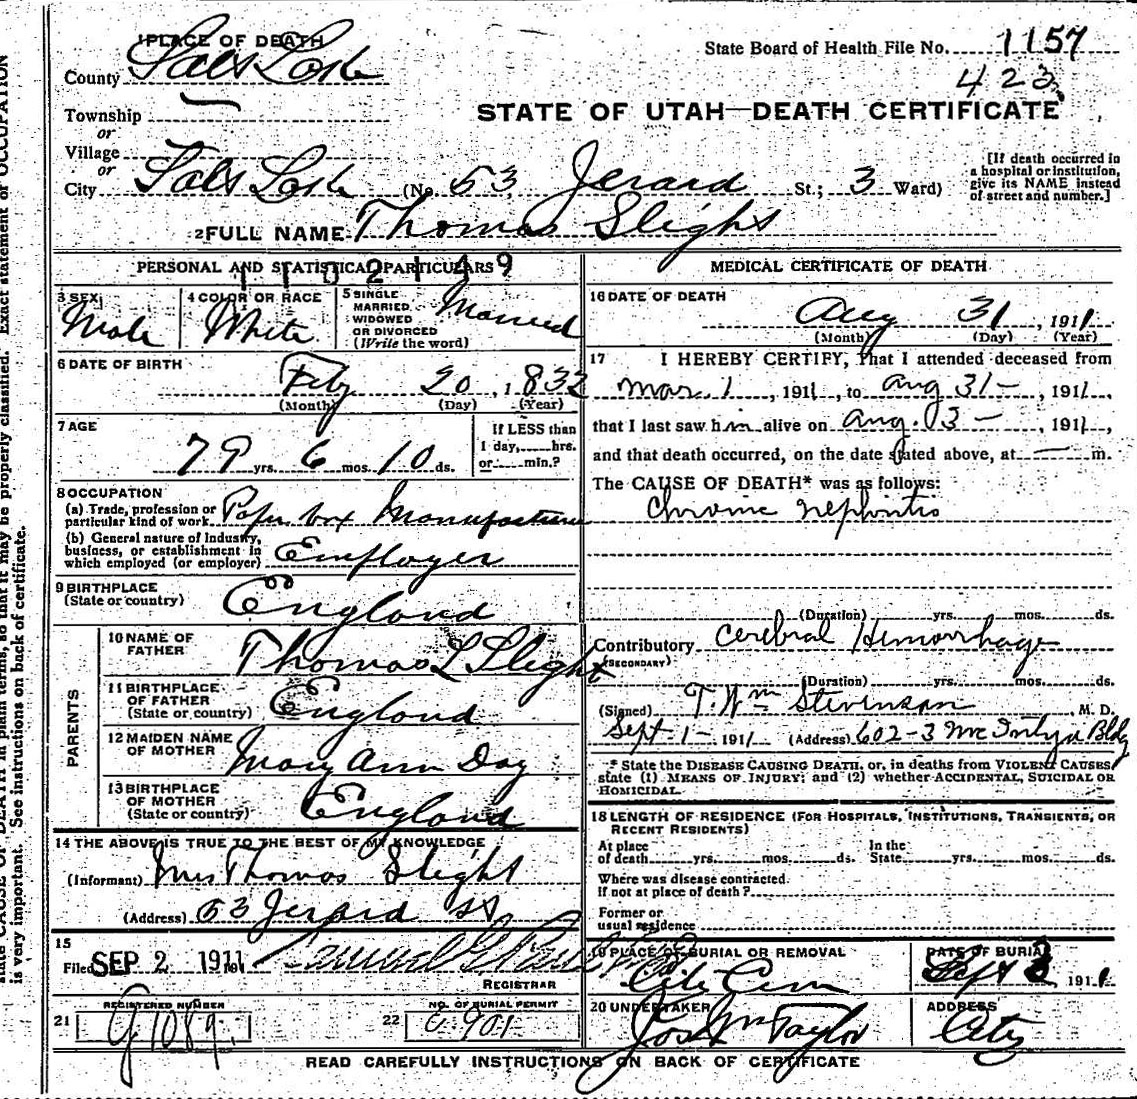 1 PLACE OF DEATH
County Salt Lake
State Board of Health File No. 1157
423
Township
or
Village
or
STATE OF UTAH—DEATH CERTIFICATE
City Salt Lake (No. 53 Jerard St.; 3 Ward)
[If death occurred in
a hospital or institution,
give its NAME instead
of street and number.]
2 FULL NAME Thomas Slight
PERSONAL AND STATISTICAL PARTICULARS
1102149
3 SEX
Male
4 COLOR OR RACE
White
5 SINGLE
MARRIED
WIDOWED
OR DIVORCED
(Write the word)
Married
6 DATE OF BIRTH
Feby 20, 1832
(Month) (Day) (Year)
7 AGE
79 yrs. 6 mos. 10 ds.
If LESS than
1 day, hrs.
or min.?
8 OCCUPATION
(a) Trade, profession or
particular kind of work Paper box Manufacturer
(b) General nature of industry,
business, or establishment in
which employed (or employer) Employer
9 BIRTHPLACE
(State or country) England
PARENTS
10 NAME OF
FATHER Thomas L Slight
11 BIRTHPLACE
OF FATHER
(State or country) England
12 MAIDEN NAME
OF MOTHER Mary Ann Day
13 BIRTHPLACE
OF MOTHER
(State or country) England
14 THE ABOVE IS TRUE TO THE BEST OF MY KNOWLEDGE
(Informant) Mrs Thomas Slight
(Address) 53 Jerard St
15
Filed SEP 2 1911
REGISTRAR
REGISTERED NUMBER
21 G1089
NO. OF BURIAL PERMIT
22 C 901
MEDICAL CERTIFICATE OF DEATH
16 DATE OF DEATH
Aug 31, 1911
(Month) (Day) (Year)
17 I HEREBY CERTIFY, That I attended deceased from
Mar. 1, 1911, to Aug 31-, 1911,
that I last saw him alive on Aug. 3-, 1911,
and that death occurred, on the date stated above, at — m.
The CAUSE OF DEATH* was as follows:
Chronic nephritis
(Duration) yrs. mos. ds.
Contributory Cerebral Hemorrhage
(SECONDARY)
(Duration) yrs. mos. ds.
(Signed) T. Wm Stevenson, M. D.
Sept 1-, 1911 (Address) 602-3 McIntyre Bldg
* State the DISEASE CAUSING DEATH, or, in deaths from VIOLENT CAUSES,
state (1) MEANS OF INJURY; and (2) whether ACCIDENTAL, SUICIDAL OR
HOMICIDAL.
18 LENGTH OF RESIDENCE (FOR HOSPITALS, INSTITUTIONS, TRANSIENTS, OR
RECENT RESIDENTS)
At place
of death yrs. mos. ds.
In the
State yrs. mos. ds.
Where was disease contracted,
if not at place of death?
Former or
usual residence
19 PLACE OF BURIAL OR REMOVAL
City Cem
DATE OF BURIAL
Sept 3 1911
20 UNDERTAKER
Jos Wm Taylor
ADDRESS
City
READ CAREFULLY INSTRUCTIONS ON BACK OF CERTIFICATE
state CAUSE OF DEATH in plain terms, so that it may be properly classified. Exact statement of OCCUPATION
is very important. See instructions on back of certificate.